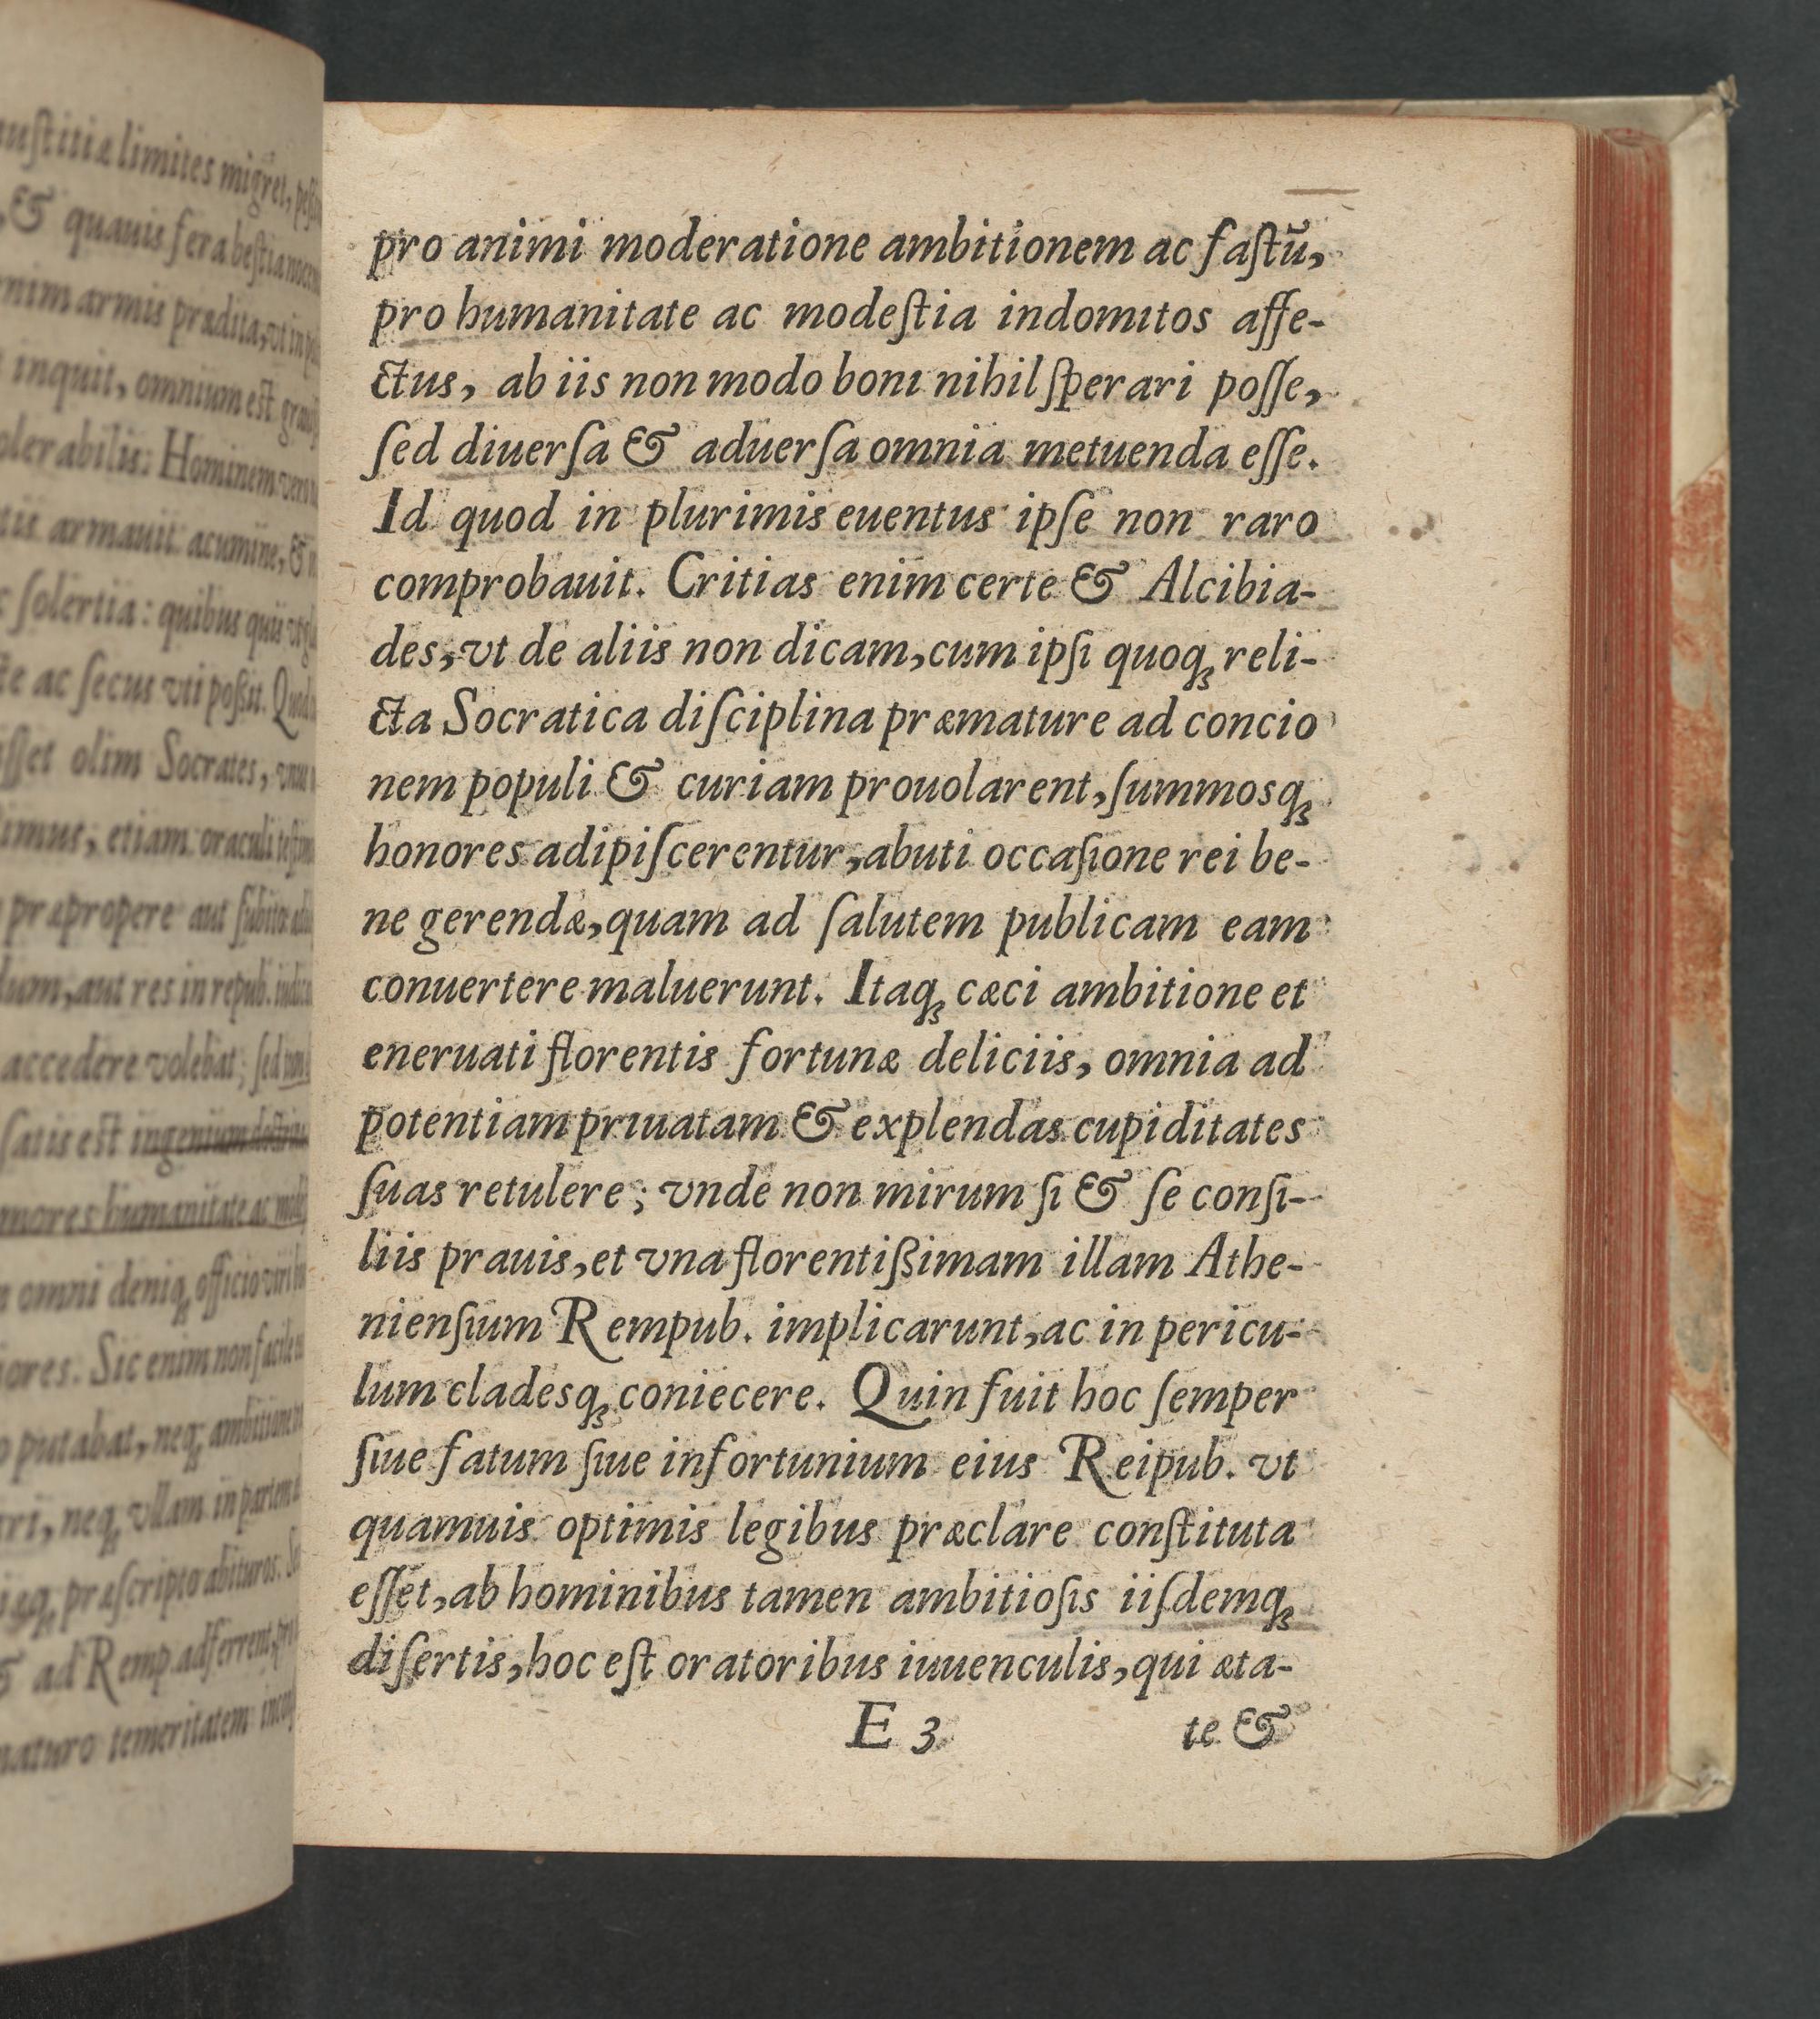 uſtitiæ limites migret,
& quauis fera beſtia
nim armis prædita, vt in
inquit, omnium eſt
olerabilis: Hominem vero
armauit acumine, &
ſolertia: quibus quis
ac ſecus vti poßit.
iſſet olim Socrates,
imus, etiam oraculi
præpropere aut ſubito
aut res in repub.
accedere volebat; ſed
ſatis eſt ingenium
mores humanitate ac
omni deniq; officio
iores. Sic enim non facile
putabat, neq; ambitione
ri, neq; vllam in partem
præſcripto abituros.
ad Remp. adferrent,
maturo temeritatem
pro animi moderatione ambitionem ac faſtū,
pro humanitate ac modeſtia indomitos affe-
ctus, ab iis non modo boni nihil ſperari poſſe,
ſed diuerſa & aduerſa omnia metuenda eſſe.
Id quod in plurimis euentus ipſe non raro
comprobauit. Critias enim certe & Alcibia-
des, vt de aliis non dicam, cum ipſi quoq; reli-
cta Socratica diſciplina præmature ad concio
nem populi & curiam prouolarent, ſummosq;
honores adipiſcerentur, abuti occaſione rei be-
ne gerendæ, quam ad ſalutem publicam eam
conuertere maluerunt. Itaq; cæci ambitione et
eneruati florentis fortunæ deliciis, omnia ad
potentiam priuatam & explendas cupiditates
ſuas retulere; vnde non mirum ſi & ſe conſi-
liis prauis, et vna florentißimam illam Athe-
nienſium Rempub. implicarunt, ac in pericu-
lum cladesq; coniecere. Quin fuit hoc ſemper
ſiue fatum ſiue infortunium eius Reipub. vt
quamuis optimis legibus præclare conſtituta
eſſet, ab hominibus tamen ambitioſis iiſdemq;
diſertis, hoc eſt oratoribus iuuenculis, qui æta-
E 3
te &